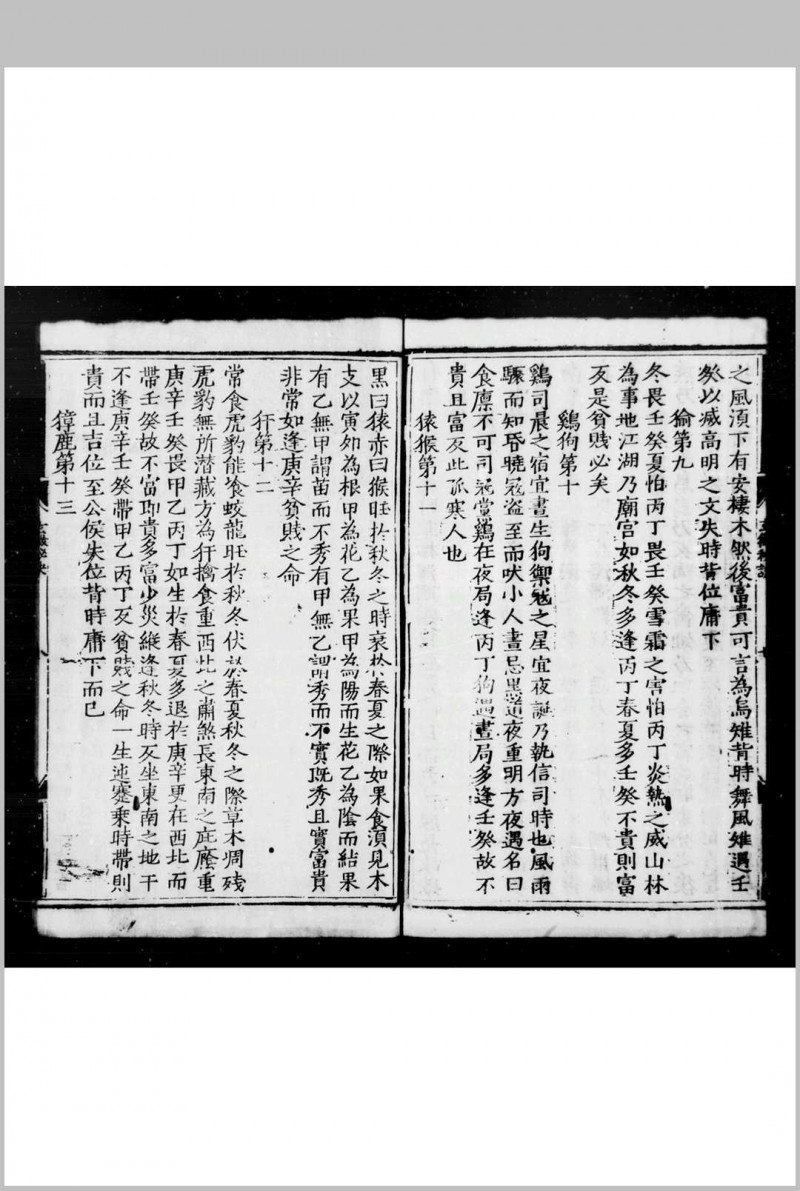 之風湏下有安棲木然後富貴可言為烏雉背時舞風雉遇壬
癸以减高明之文失時背位庸下
㺄第九
冬畏壬癸夏怕丙丁畏壬癸雪霜之害怕丙丁炎熱之威山林
為事地江湖乃廟宮如秋冬多逢丙丁春夏多壬癸不貴則富
反是貧賤必矣
鷄狗第十
鷄司晨之宿宜晝生狗禦冦之星宜夜誕乃執信司時也風雨
驟而知昏曉冦盗至而吠小人晝忌黑道夜重明方夜遇名曰
食廪不可司冦當鷄在夜局逢丙丁狗遇晝局多逢壬癸故不
貴且富反此孤寒人也
猿猴第十一
黒曰猿赤曰猴旺於秋冬之時衰於春夏之際如果食湏見木
支以寅夘為根甲為花乙為果甲為陽而生花乙為陰而結果
有乙無甲謂苗而不秀有甲無乙謂秀而不實既秀且實富貴
非常如逢庚辛貧賤之命
犴第十二
常食虎豹能飡蛟龍旺於秋冬伏於春夏秋冬之際草木凋残
虎豹無所潜藏方為犴擒食重西北之肅煞長東南之庇廕重
庚辛壬癸畏甲乙丙丁如生於春夏多退於庚辛更在西北而
帶壬癸故不富即貴多富少災縱逢秋冬時反坐東南之地干
不逢庚辛壬癸帶甲乙丙丁反貧賤之命一生迍蹇乘時帶則
貴而且吉位至公侯失位背時庸下而已
獐鹿第十三